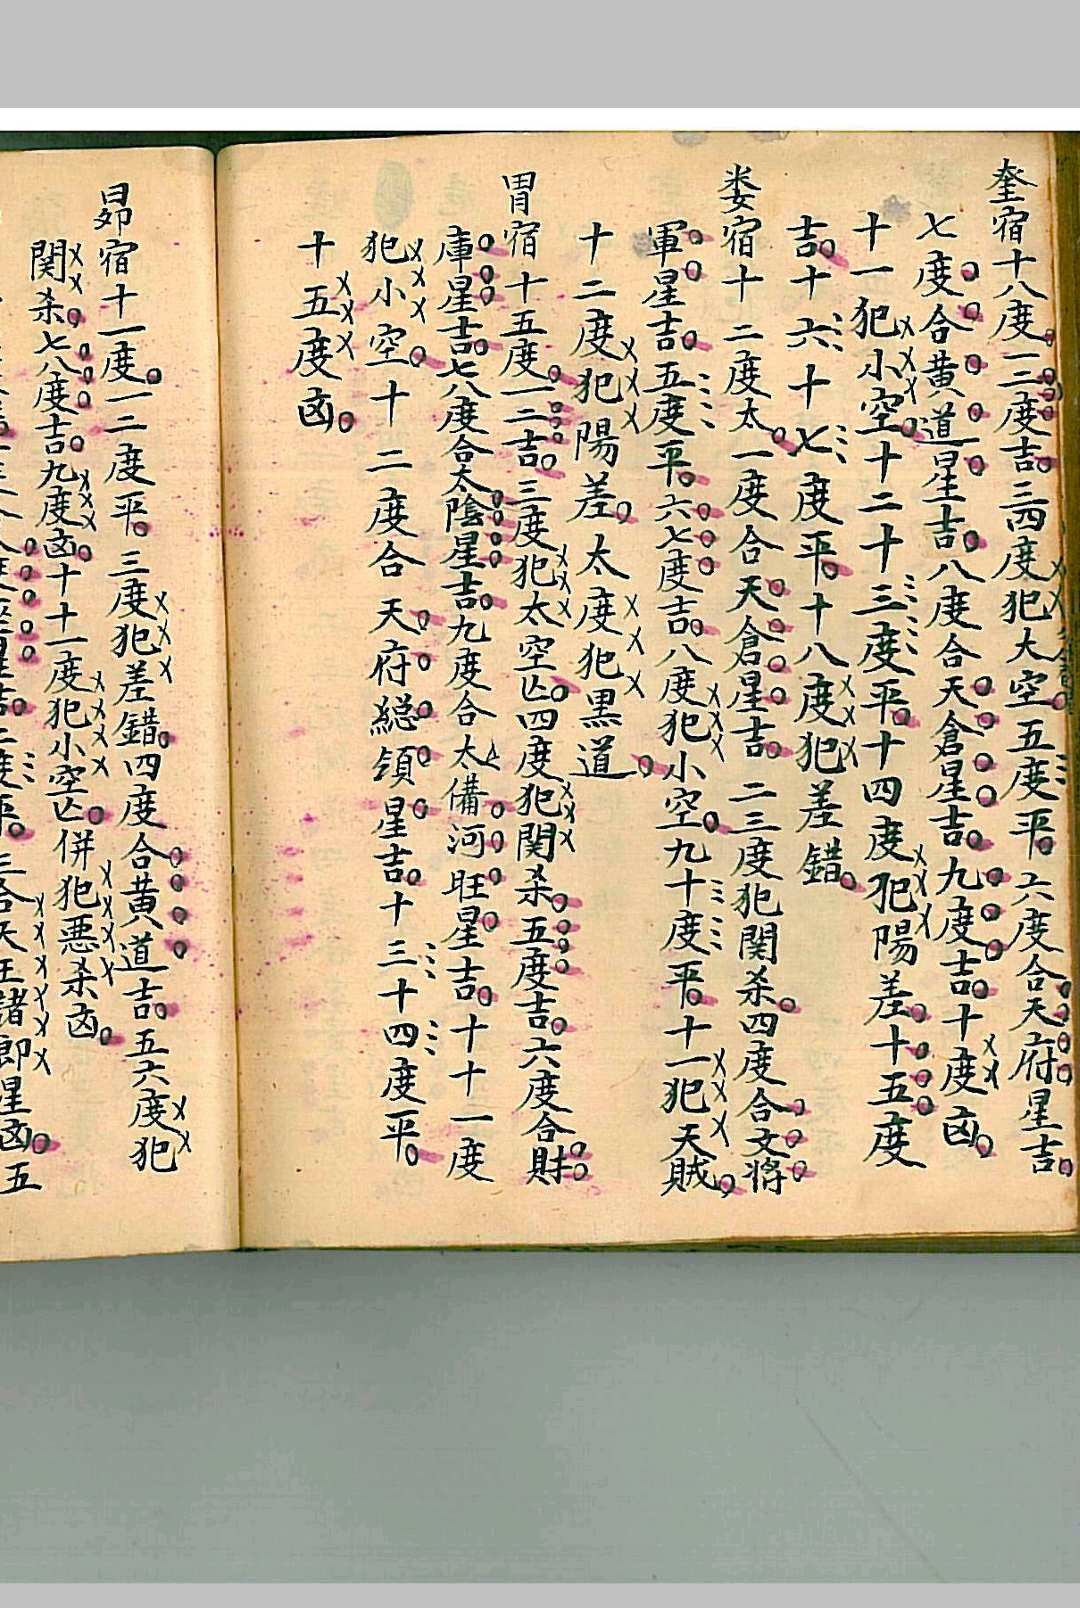 奎宿十八度一二度吉三四度犯大空五度平六度合天府星吉
七度合黄道星吉八度合天倉星吉九度吉十度凶
十一犯小空十二十三度平十四度犯陽差十五度
吉十六十七度平十八度犯差錯
娄宿十二度太一度合天倉星吉二三度犯関杀四度合文将
軍星吉五度平六七度吉八度犯小空九十度平十一犯天賊
十二度犯陽差太度犯黒道
胃宿十五度一二吉三度犯太空亾四度犯関杀五度吉六度合財
庫星吉七八度合太陰星吉九度合太備河旺星吉十十一度
犯小空十二度合天府総領星吉十三十四度平
十五度凶
昴宿十一度一二度平三度犯差錯四度合黄道吉五六度犯
関杀七八度吉九度凶十十一度犯小空亾併犯悪杀凶
二度平三合天王諸郎星凶五